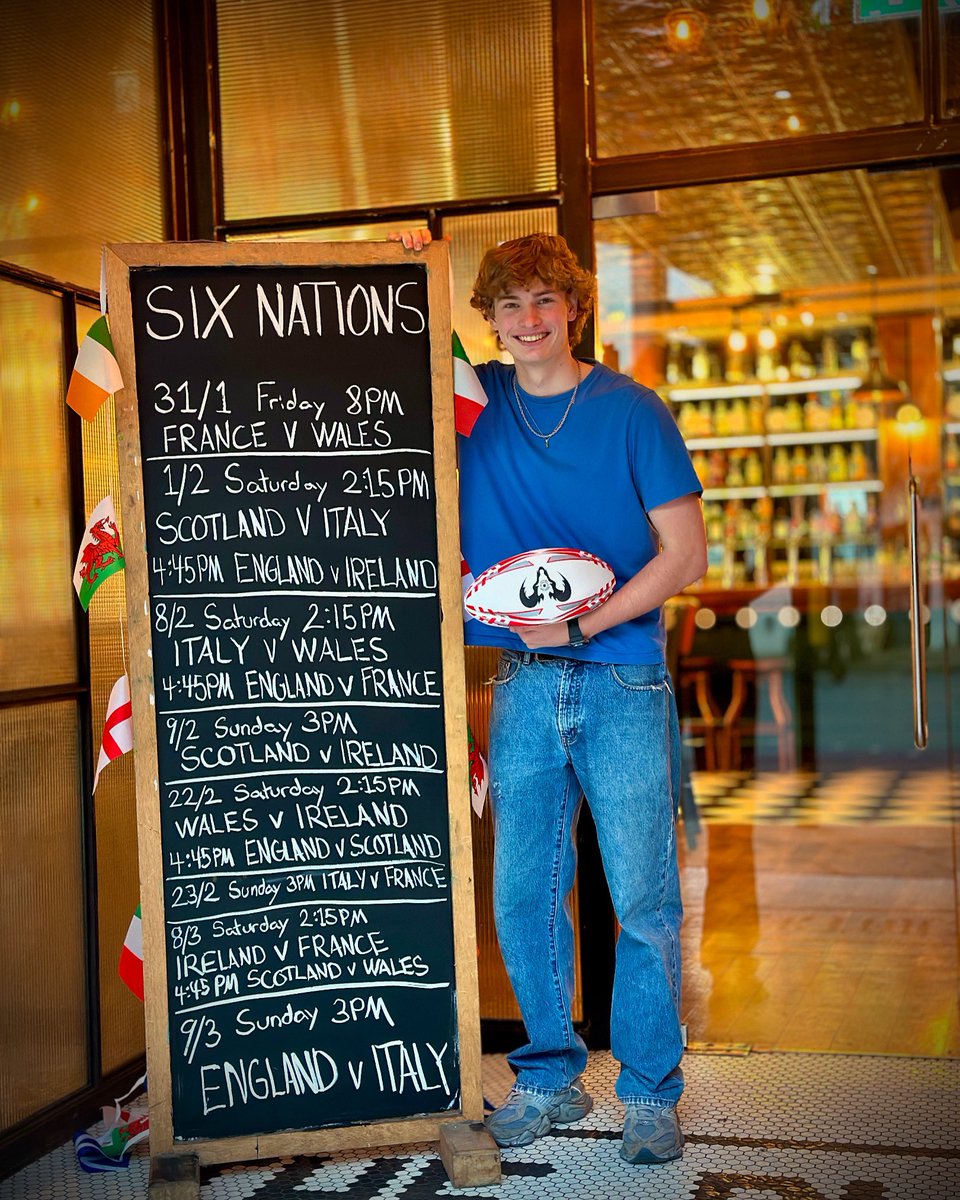 SIX NATIONS
31/1 Friday 8PM
FRANCE V WALES
1/2 Saturday 2:15PM
SCOTLAND V ITALY
4:45PM ENGLAND V IRELAND
8/2 Saturday 2:15PM
ITALY V WALES
4:45PM ENGLAND V FRANCE
9/2 Sunday 3PM
SCOTLAND V IRELAND
22/2 Saturday 2:15PM
WALES V IRELAND
4:45PM ENGLAND V SCOTLAND
23/2 Sunday 3PM ITALY V FRANCE
8/3 Saturday 2:15PM
IRELAND V FRANCE
4:45 PM SCOTLAND V WALES
9/3 Sunday 3PM
ENGLAND V ITALY